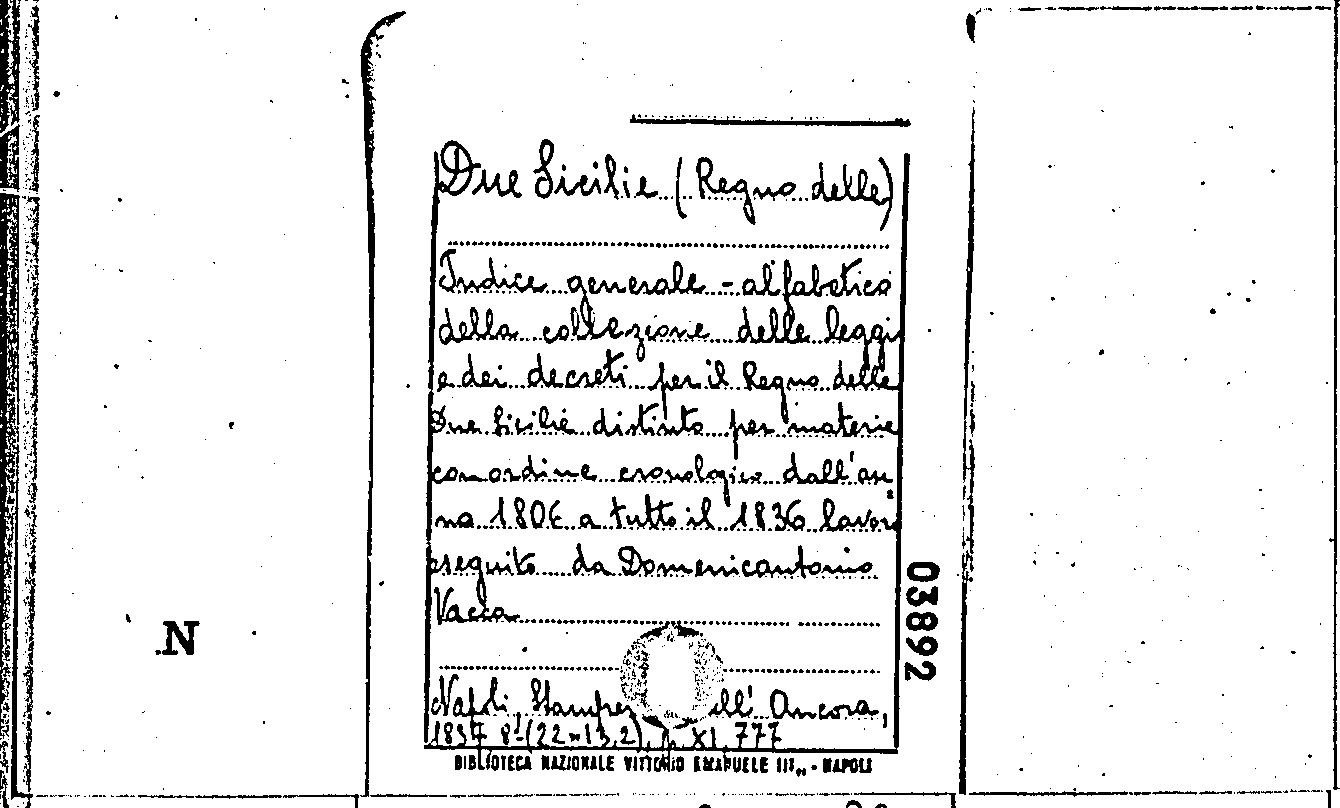 Due Sicilie (Regno delle)
Indice generale - alfabetico
della collezione delle leggi
e dei decreti per il Regno delle
Due Sicilie distinto per materie
con ordine cronologico dall'an
no 1806 a tutto il 1836 lavoro
eseguito da Domenicantonio
Vacca
Napoli, Stamper ell' Ancora,
1837 8º (22×13,2), p. XI, 777
BIBLIOTECA NAZIONALE VITTORIO EMANUELE III,, - NAPOLI
03892
.N